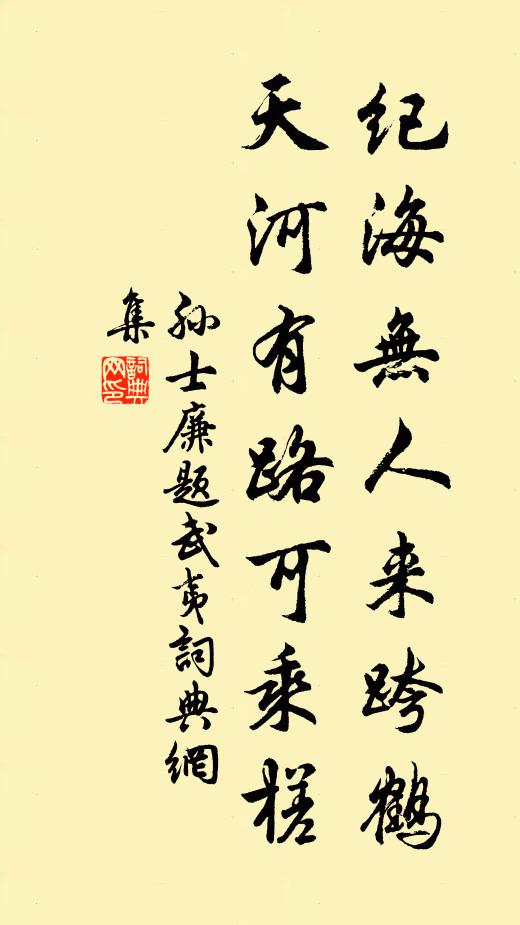 紀海無人来跨鶴
天河有路可乘槎
孙士廉题武夷詞典網
集
詞典
网印